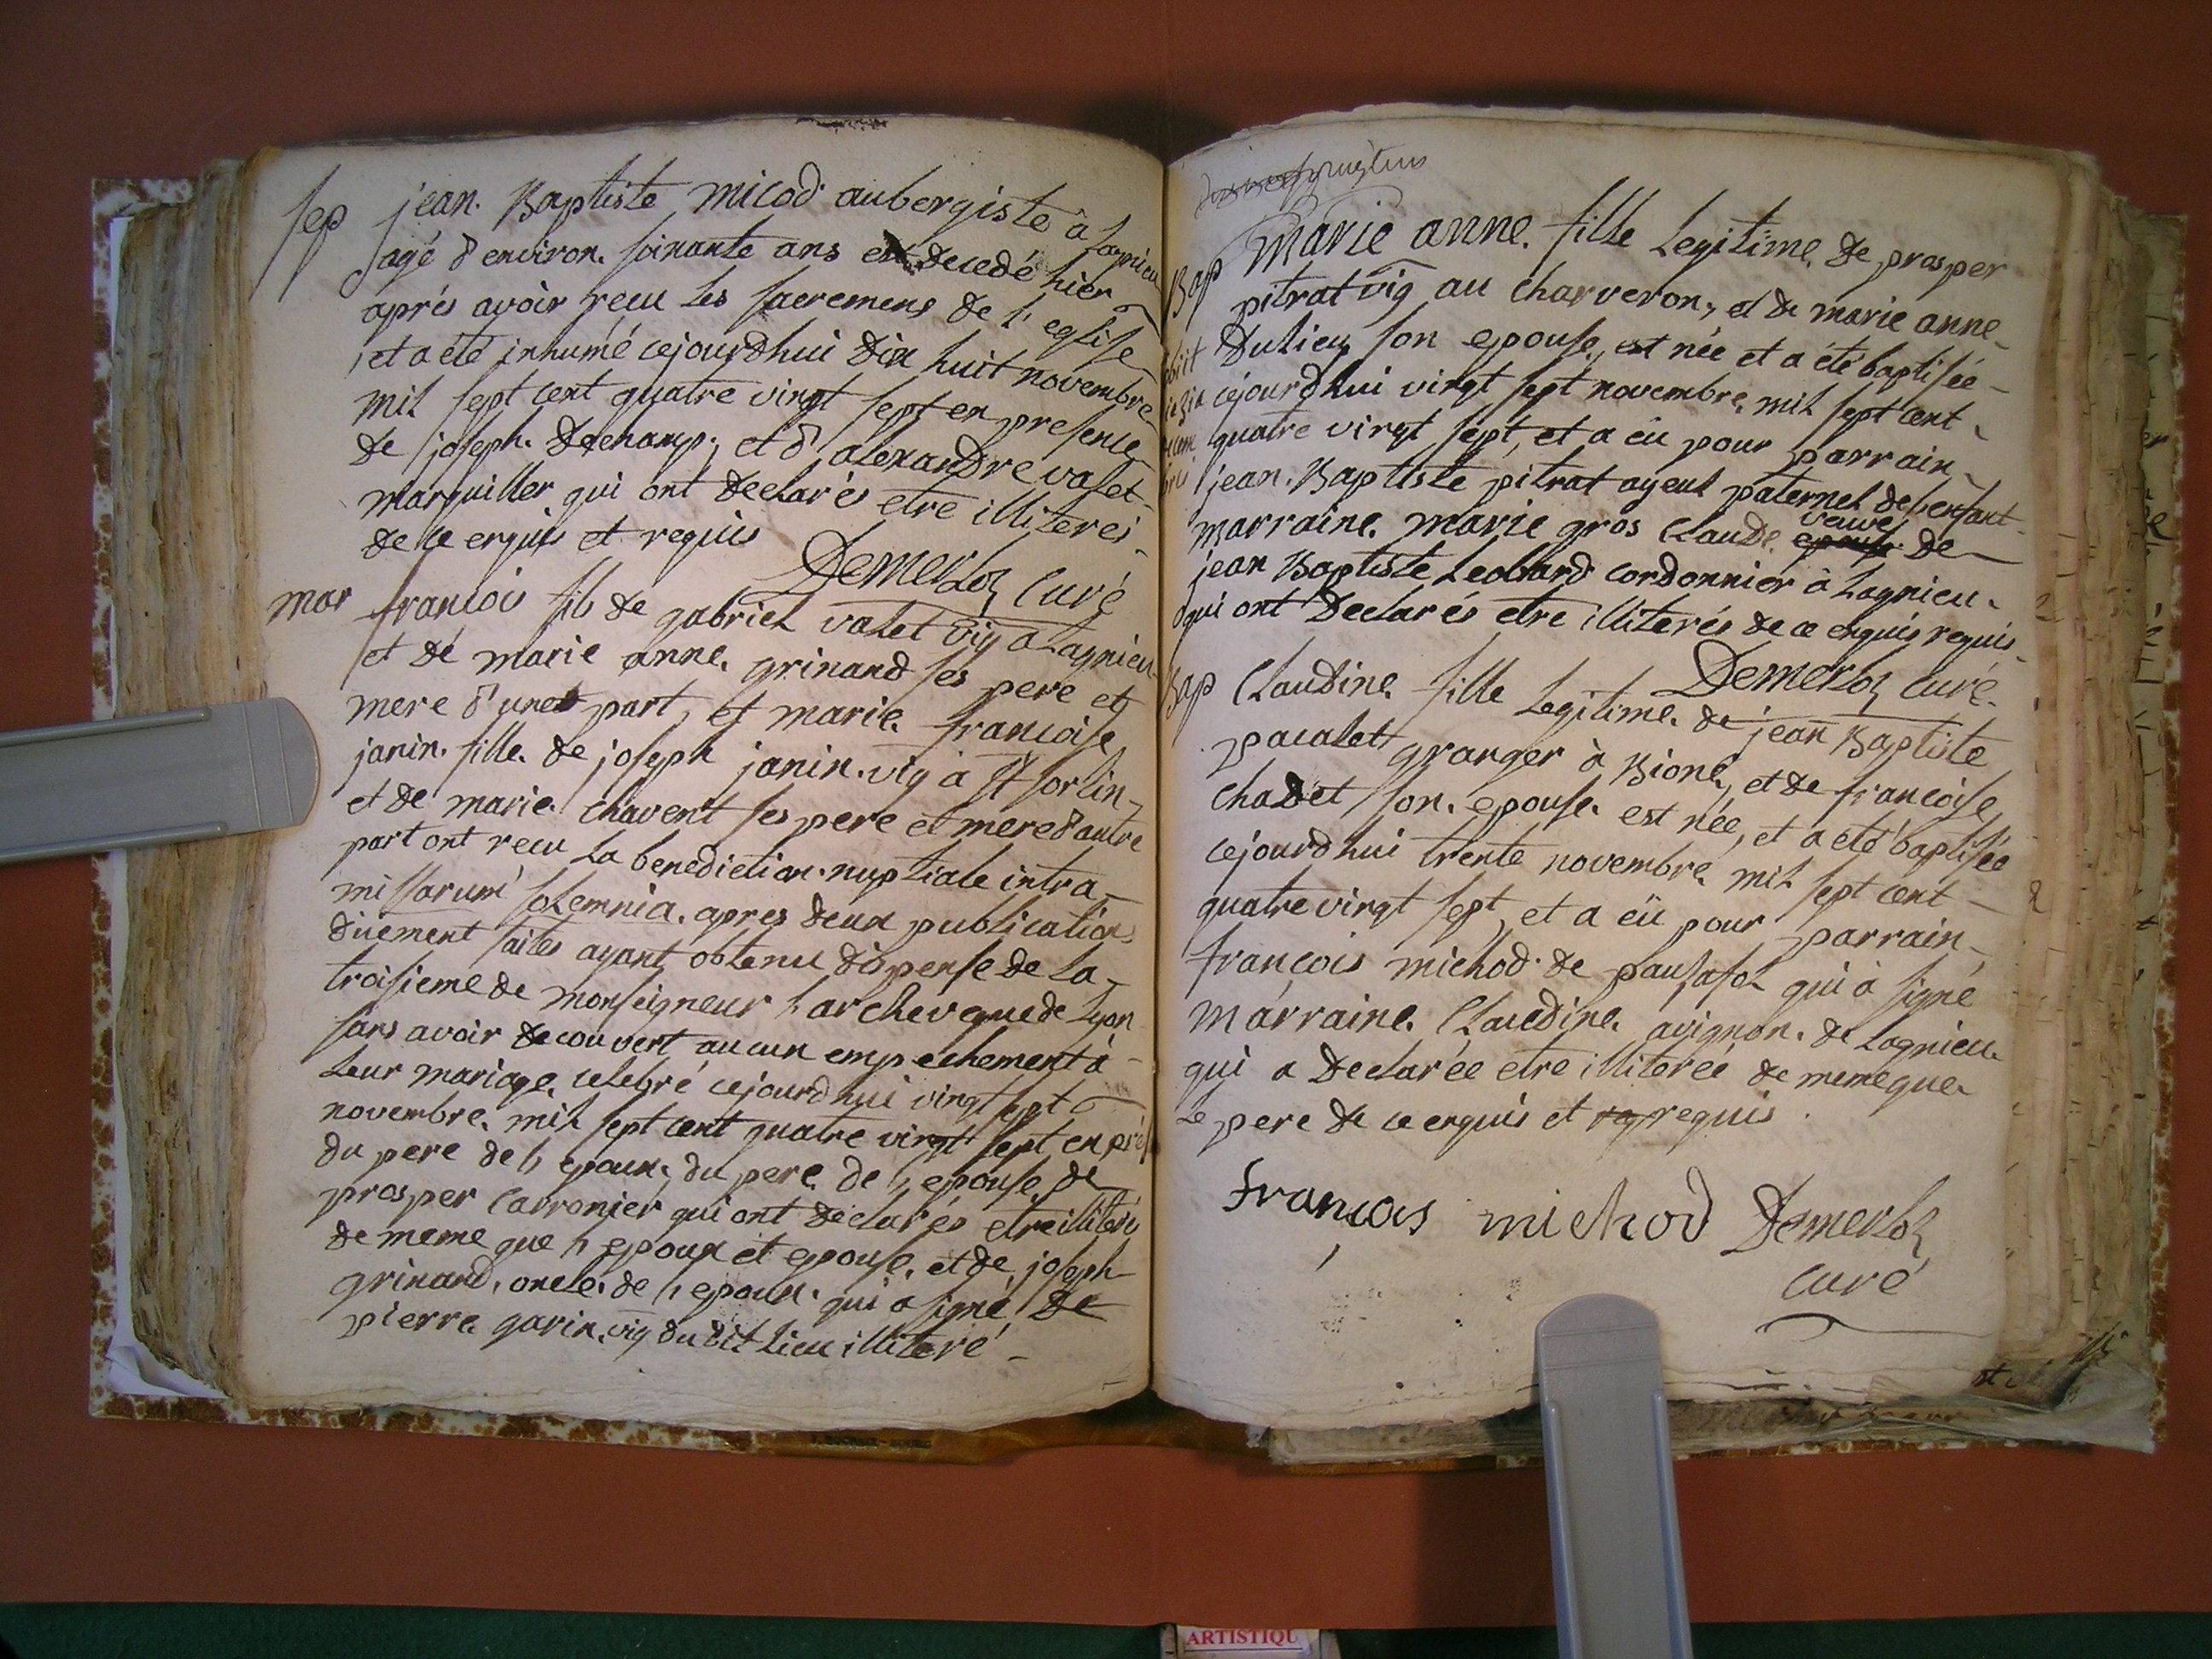 sep jean Baptiste micod aubergiste à Lagnieu
agé d'environ soixante ans est decedé hier
aprés avoir reçu les sacremens de l'eglise
et a été inhumé cejourdhui dix huit novembre
mil sept cent quatre vingt sept en presence
de joseph dechamp, et d'alexandre valet
marguiller qui ont declarés etre illiterés
de ce enquis et requis Demerloz curé
mar francois fils de gabriel valet vig a Lagnieu
et de marie anne grinand ses pere et
mere d'une part, et marie francoise
janin fille de joseph janin vig à St sorlin
et de marie chavent ses pere et mere d'autre
part ont reçu la benediction nuptiale intra
missarum solemnia apres deux publications
düement faites ayant obtenu dispense de la
troisieme de monseigneur l'archeveque de Lyon
sans avoir decouvert aucun empechement à
leur mariage celebré cejourdhui vingt sept
novembre mil sept cent quatre vingt sept en prés
du pere de l'epoux, du pere de l'epouse de
prosper carronier qui ont declarés etre illiterés
de meme que l'epoux et epouse, et de joseph
grinand, oncle de l'epoux qui a signé de
pierre garin vig du dit lieu illiteré
Bap Marie anne fille legitime de prosper
pitrat vig au charveron, et de marie anne
Dulieu son epouse est née et a été baptisée
cejourdhui vingt sept novembre mil sept cent
quatre vingt sept, et a eü pour parrain
jean Baptiste pitrat ayeul paternel de l'enfant
marraine marie gros claude epouse veuve de
jean Baptiste Leobard cordonnier à Lagnieu
qui ont declarés etre illiterés de ce enquis requis
Demerloz curé
Bap Claudine fille legitime de jean Baptiste
pacalet granger à Bione, et de francoise
chadet son epouse est née, et a eté baptisée
cejourdhui trente novembre mil sept cent
quatre vingt sept, et a eü pour parrain
françois michod de pausafol qui à signé
marraine Claudine avignon de Lagnieu
qui a declarée etre illiterée de meme que
le pere de ce enquis et req requis
françois michod Demerloz
curé
ARTISTIQU